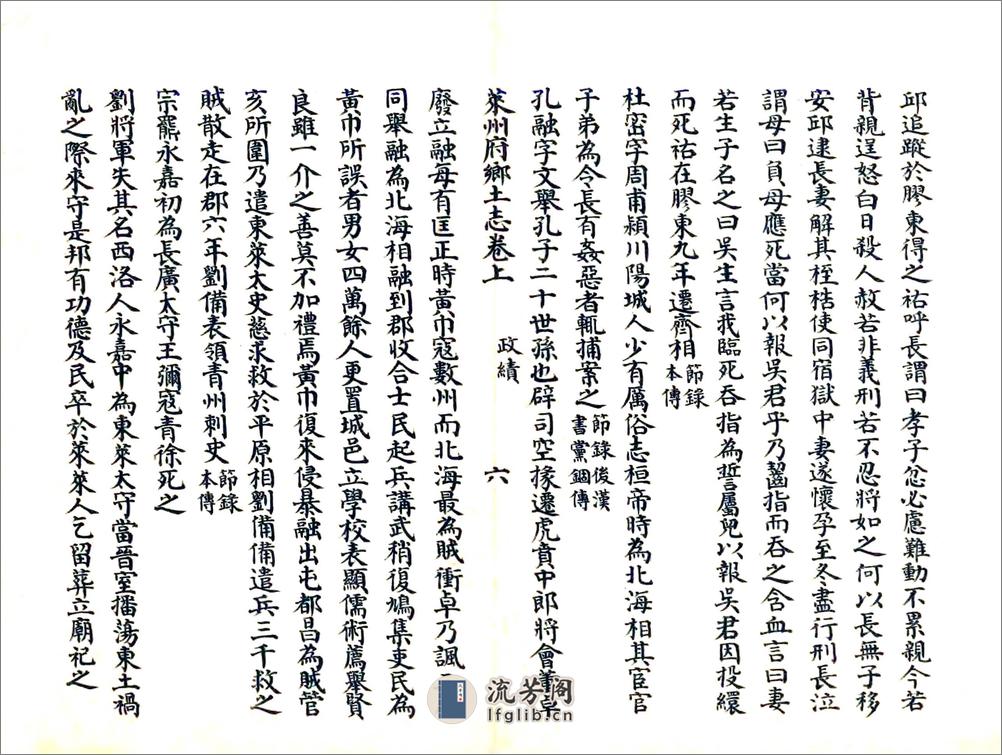 邱追蹤於膠東得之祐呼長謂曰孝子忿必慮難動不累親今若
背親逞怒白日殺人赦若非義刑若不忍將如之何以長無子移
安邱逮長妻解其桎梏使同宿獄中妻遂懷孕至冬盡行刑長泣
謂母曰負母應死當何以報吳君乎乃齧指而吞之含血言曰妻
若生子名之曰吳生言我臨死吞指為誓屬兒以報吳君因投繯
而死祐在膠東九年遷齊相節錄本傳
杜密字周甫潁川陽城人少有厲俗志桓帝時為北海相其宦官
子弟為令長有姦惡者輒捕案之節錄後漢書黨錮傳
孔融字文舉孔子二十世孫也辟司空掾遷虎賁中郎將會董卓
萊州府鄉土志卷上 政績 六
廢立融每有匡正時黃巾寇數州而北海最為賊衝卓乃諷
同舉融為北海相融到郡收合士民起兵講武稍復鳩集吏民為
黃巾所誤者男女四萬餘人更置城邑立學校表顯儒術薦舉賢
良雖一介之善莫不加禮焉黃巾復來侵暴融出屯都昌為賊管
亥所圍乃遣東萊太史慈求救於平原相劉備備遣兵三千救之
賊散走在郡六年劉備表領青州刺史節錄本傳
宗羆永嘉初為長廣太守王彌寇青徐死之
劉將軍失其名西洛人永嘉中為東萊太守當晉室播蕩東土禍
亂之際來守是邦有功德及民卒於萊萊人乞留葬立廟祀之
流芳閣
lfglib.cn